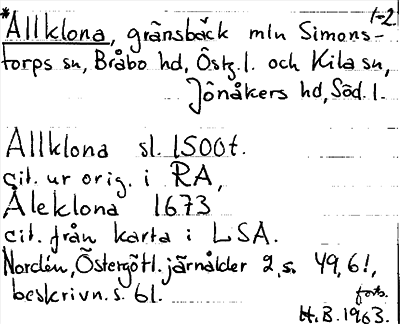 1-2
*Allklona, gränsbäck mln Simons-
torps sn, Bråbo hd, Östg.l. och Kila sn,
Jönåkers hd, Söd. l.
Allklona sl. 1500t.
cit. ur orig. i RA,
Åleklona 1673
cit. från karta i LSA.
Nordén, Östergötl. järnålder 2, s. 49, 61,
beskrivn. s. 61.
forts.
H.B. 1963.